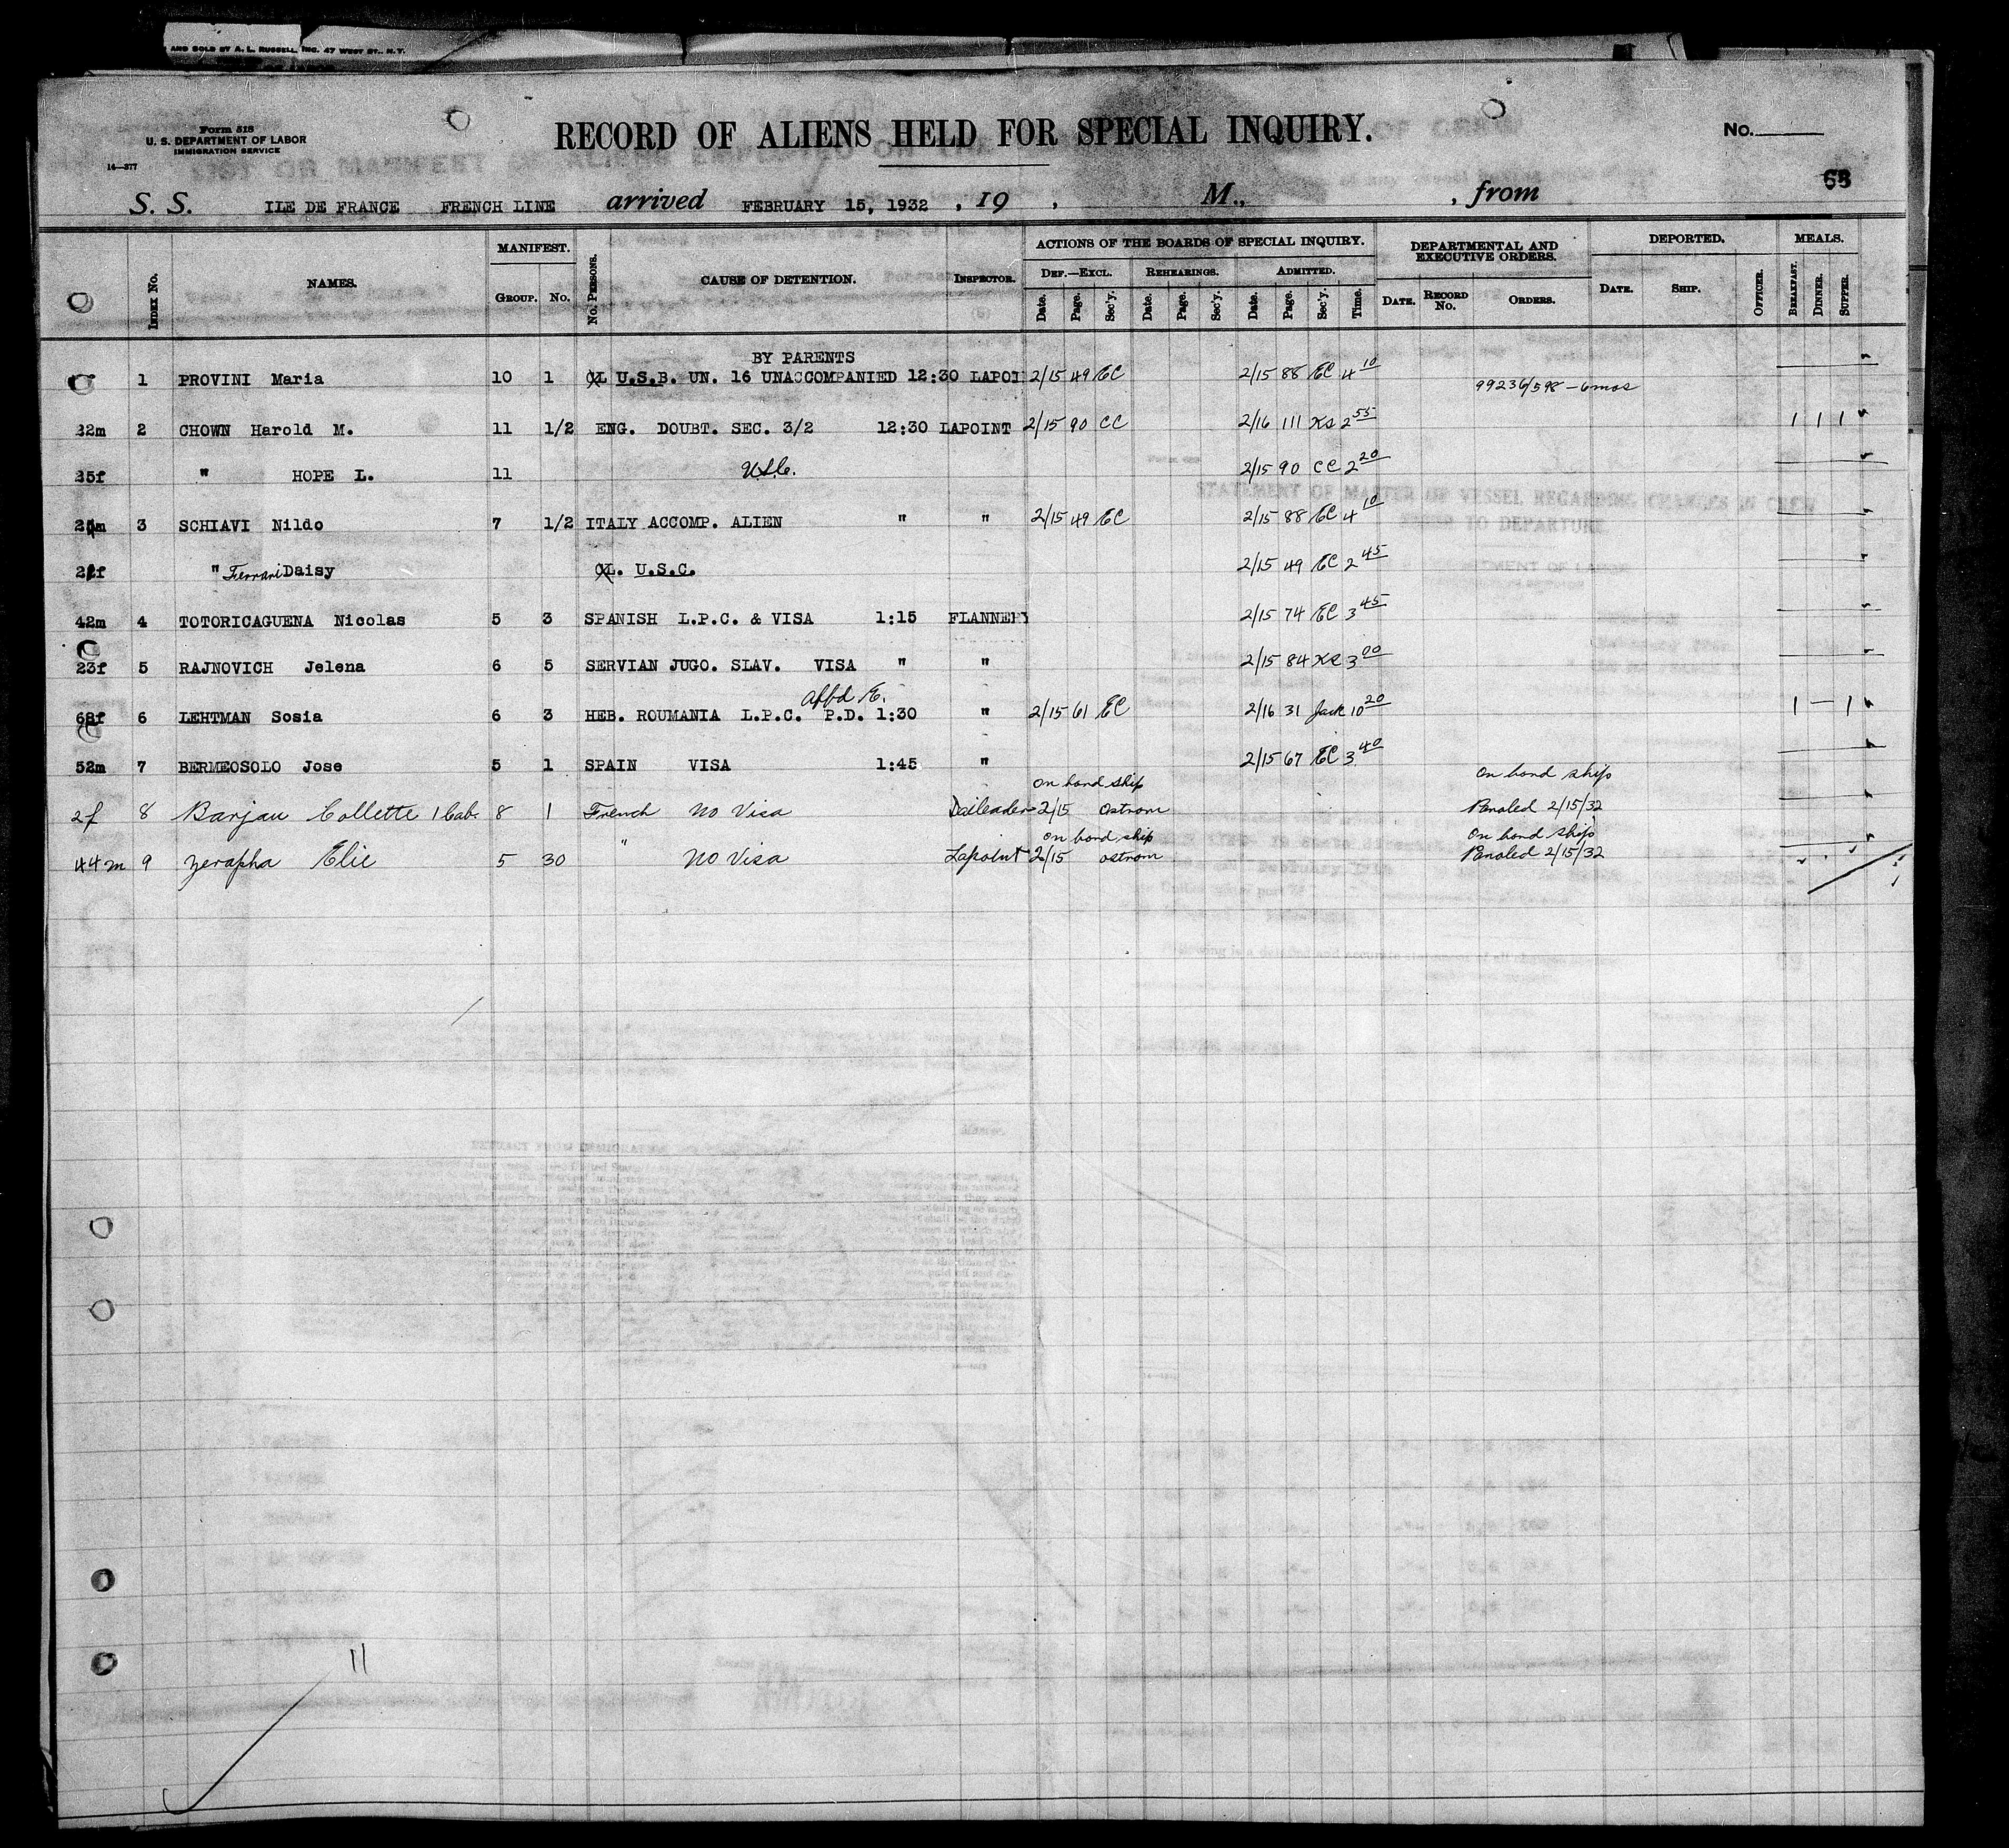 AND SOLD BY A. L. RUSSELL, INC. 47 WEST ST., N. Y.
Form 518
U. S. DEPARTMENT OF LABOR
IMMIGRATION SERVICE
14—377
RECORD OF ALIENS HELD FOR SPECIAL INQUIRY.
No.
68
S. S. ILE DE FRANCE FRENCH LINE arrived FEBRUARY 15, 1932 , 19 , M., , from
INDEX NO. NAMES. MANIFEST. GROUP. NO. NO. PERSONS. CAUSE OF DETENTION. INSPECTOR. ACTIONS OF THE BOARDS OF SPECIAL INQUIRY. DEF.—EXCL. Date. Page. Sec'y. REHEARINGS. Date. Page. Sec'y. ADMITTED. Date. Page. Sec'y. Time. DEPARTMENTAL AND EXECUTIVE ORDERS. DATE. RECORD NO. ORDERS. DEPORTED. DATE. SHIP. OFFICER. MEALS. BREAKFAST. DINNER. SUPPER.
BY PARENTS
1 PROVINI Maria 10 1 U.S.B. UN. 16 UNACCOMPANIED 12:30 LAPOI 2/15 49 EC 2/15 88 EC 4 10 99236/598 - 6 mos
32m 2 CHOWN Harold M. 11 1/2 ENG. DOUBT. SEC. 3/2 12:30 LAPOINT 2/15 90 CC 2/16 111 KS 2 55 1 1 1
35f " HOPE L. 11 U.S.C. 2/15 90 CC 2 20
3 SCHIAVI Nildo 7 1/2 ITALY ACCOMP. ALIEN " " 2/15 49 EC 2/15 88 EC 4 10
" Ferrari Daisy U.S.C. 2/15 49 EC 2 45
42m 4 TOTORICAGUENA Nicolas 5 3 SPANISH L.P.C. & VISA 1:15 FLANNERY 2/15 74 EC 3 45
23f 5 RAJNOVICH Jelena 6 5 SERVIAN JUGO. SLAV. VISA " " 2/15 84 KS 3 00
68f 6 LEHTMAN Sosia 6 3 HEB. ROUMANIA L.P.C. P.D. 1:30 " 2/15 61 EC 2/16 31 Jack 10 20 1 — 1
52m 7 BERMEOSOLO Jose 5 1 SPAIN VISA 1:45 " 2/15 67 EC 3 40
on board ship on board ship
2f 8 Barjau Collette 1 Cab. 8 1 French No Visa 2/15 Ostrom Paroled 2/15/32
on board ship on board ship
44m 9 Zerapha Elie 5 30 " No Visa Lapoint 2/15 ostrom Paroled 2/15/32
11